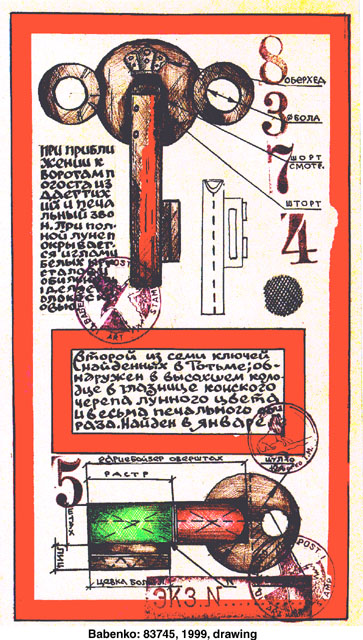 8 ОБЕРХЕД
3 ФБОЛА
7 ШОРТ
СМОТР.
ШТОРТ
4
ПРИ ПРИБЛИ
ЖЕНИИ К
ВОРОТАМ П
ОГОСТА ИЗ
ДАЕТ ТИХ
ИЙ И ПЕЧА
ЛЬНЫЙ ЗВО
Н. ПРИ ПОЛ
НОЙ ЛУНЕ П
ОКРЫВАЕТ
СЯ ИГЛАМИ
БЕЛЫХ КРИ
СТАЛОВ И
ОБИЛЬНО
POST
ART
STAMP
ВТОРОЙ ИЗ СЕМИ КЛЮЧЕЙ
НАЙДЕННЫХ В ТОТЬМЕ; ОБ-
НАРУЖЕН В ВЫСОХШЕМ КОЛО
ДЦЕ В ГЛАЗНИЦЕ КОНСКОГО
ЧЕРЕПА ЛУННОГО ЦВЕТА
И ВЕСЬМА ПЕЧАЛЬНОГО ОБ
РАЗА. НАЙДЕН В ЯНВАРЕ
5
ОБЕРШТАХ
РАСТР
ШТАХ
ЦЕВКА
POST
ЭКЗ. N
Babenko: 83745, 1999, drawing